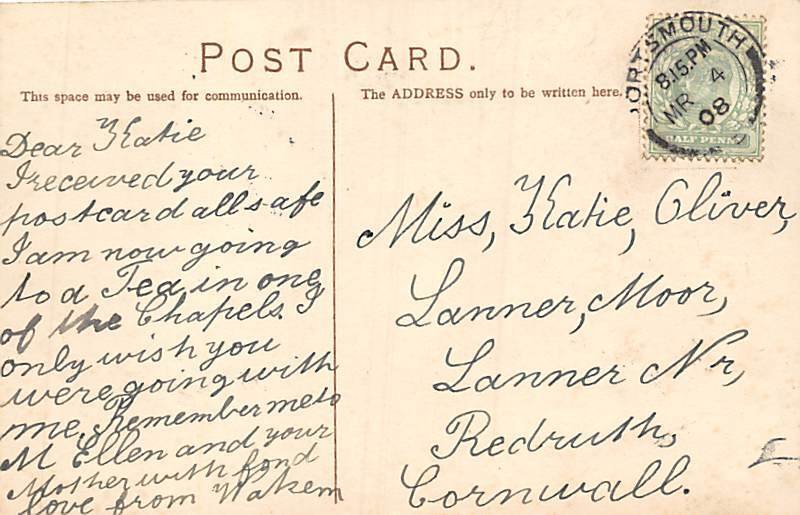 POST CARD.
This space may be used for communication.
The ADDRESS only to be written here.
PORTSMOUTH
8.15.PM
MR 4
08
HALF PENNY
Dear Katie
I received your
postcard all safe
I am now going
to a Tea in one
of the Chapels. I
only wish you
were going with
me, Remember me to
M Ellen and your
Mother with fond
love from Wakem
Miss, Katie, Oliver,
Lanner, Moor,
Lanner Nr,
Redruth,
Cornwall.